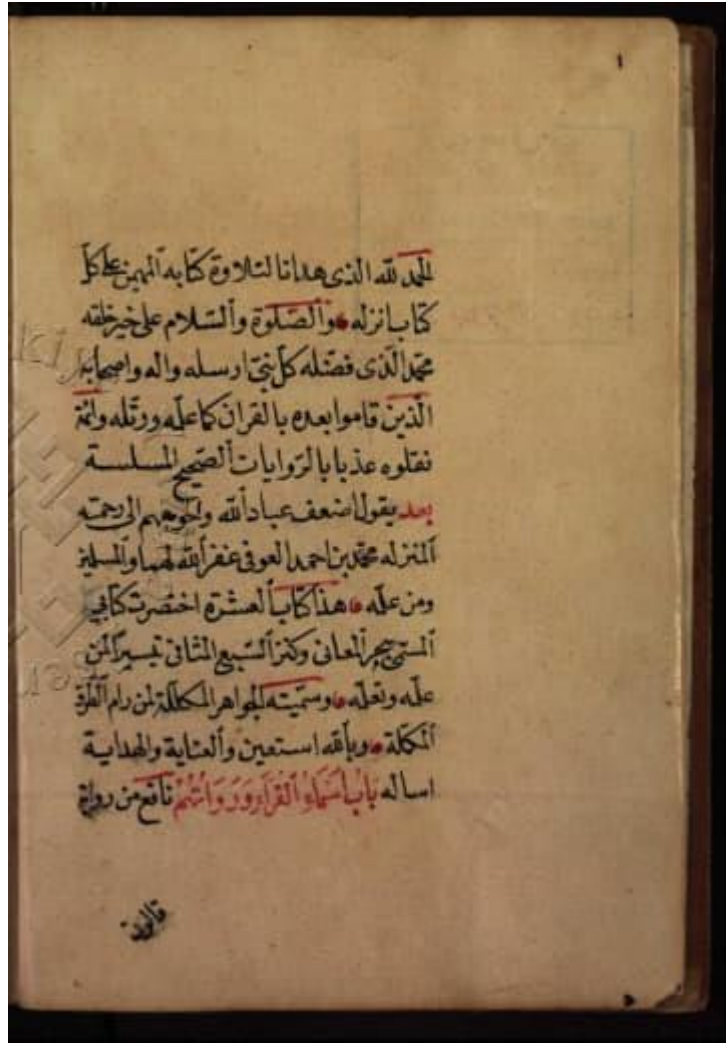 ١
الحمد لله الذى هدانا لتلاوة كتابه المهيمن على كل
كتاب انزله والصلوة والسلام على خير خلقه
محمد الذى فضله كل نبى ارسله واله واصحابه
الذين قاموا بعده بالقران كما علمه ورتله وائمة
نقلوه عذبا بالروايات الصحيح المسلسة
بعد يقول اضعف عباد الله واحوجهم الى رحمته
المنزله محمد بن احمد العوفى غفر الله لهما والمسلمين
ومن علمه هذا كتاب العشرة اختصرت كتابي
المسمى بجر المعانى وكنز السبع المثانى تيسيرا لمن
علمه وتعلمه وسميته الجواهر المكللة لمن رام الطرق
المكملة وبالله استعين والعناية والهداية
اساله باب اسماء القراء ورواتهم نافع من رواة
قالون